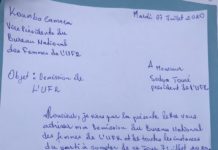 Koumba Camara
Vice Présidente du
Bureau National
des Femmes de L'UFR
Mardi 07 Juillet 2020
A Monsieur
Sidya Touré
président de l'UFR
Objet : Démission de
L'UFR
Monsieur, je viens par la présente lettre vous
adresser ma démission du Bureau National
des femmes de l'UFR et de toutes les instances
du parti à compter de ce jour